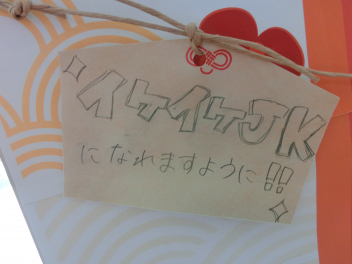 イケイケJK
になれますように!!